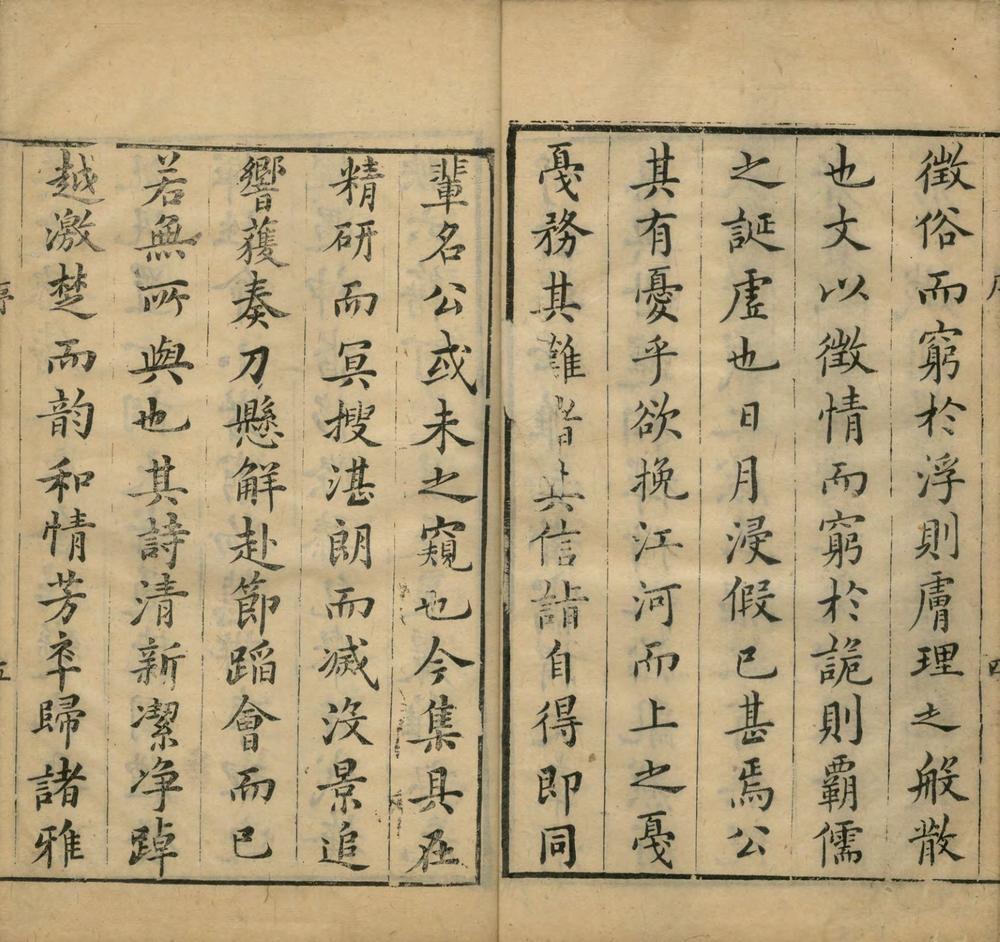 徵俗而窮於浮則膚理之般散
也文以徵情而窮於詭則霸儒
之誕虛也日月浸假已甚焉公
其有憂乎欲挽江河而上之戞
戞務其難昔其信詣自得即同
輩名公或未之窺也今集具在
精研而冥搜湛朗而滅沒景追
響蒦奏刀懸解赴節蹈會而已
若無所與也其詩清新潔净踔
越激楚而韵和情芳卒歸諸雅
序
五